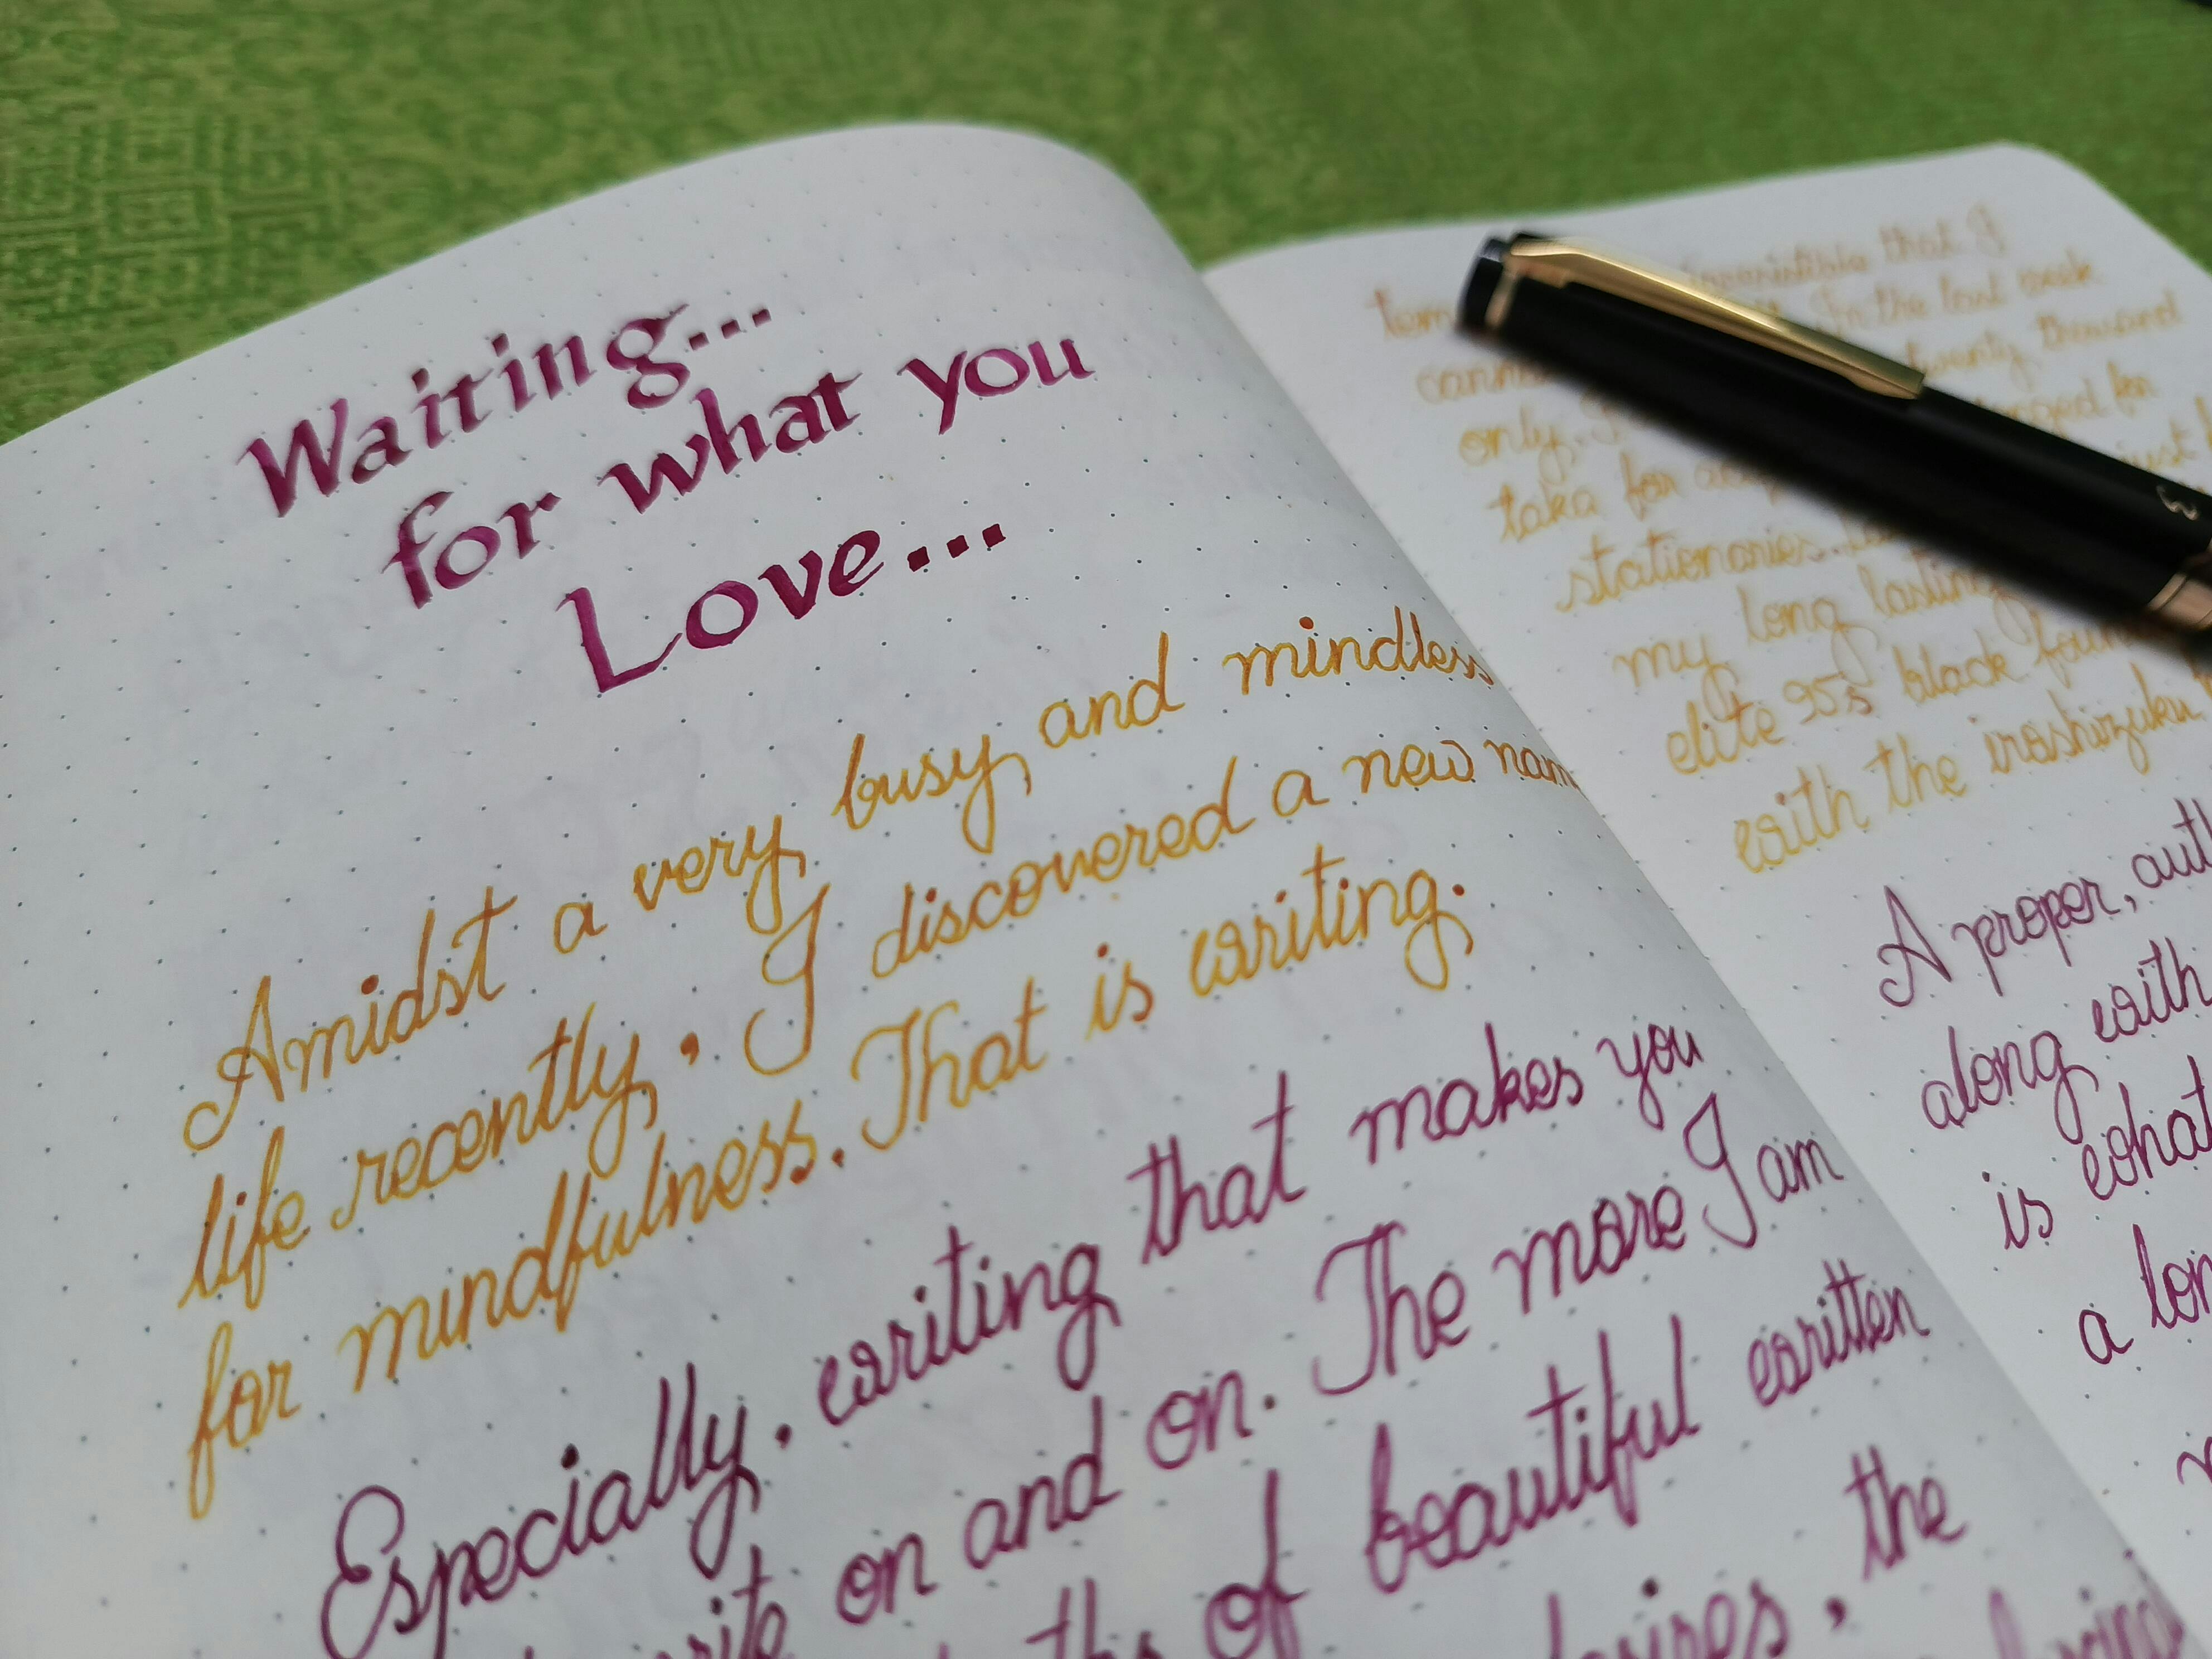 Waiting...
for what you
Love...
Amidst a very busy and mindless
life recently, I discovered a new
for mindfulness. That is writing.
Especially, writing that makes you
on and on. The more I am
of beautiful written
the
that I
In the last week
twenty thousand
only. for
taka for just
stationaries.
my long lasting
elite 95s black
with the iroshizuku
A proper,
along with
is what
a